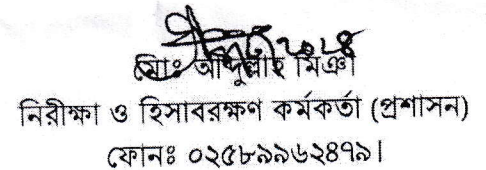 মোঃ আব্দুল্লাহ মিঞা
নিরীক্ষা ও হিসাবরক্ষণ কর্মকর্তা (প্রশাসন)
ফোনঃ ০২৫৮৯৯৬২৪৭৯।